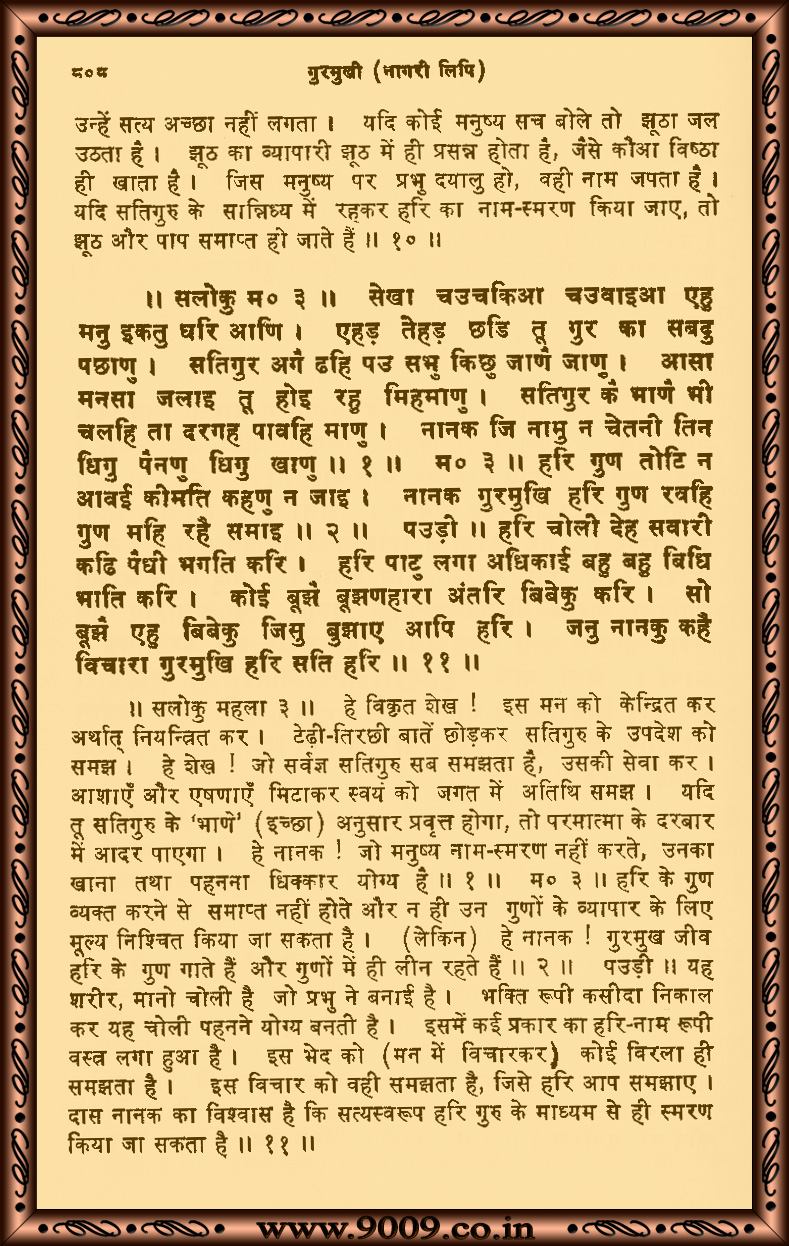 ८०८ गुरमुखी (नागरी लिपि)
उन्हें सत्य अच्छा नहीं लगता । यदि कोई मनुष्य सच बोले तो झूठा जल
उठता है । झूठ का व्यापारी झूठ में ही प्रसन्न होता है, जैसे कौआ विष्ठा
ही खाता है । जिस मनुष्य पर प्रभु दयालु हो, वही नाम जपता है ।
यदि सतिगुरु के सान्निध्य में रहकर हरि का नाम-स्मरण किया जाए, तो
झूठ और पाप समाप्त हो जाते हैं ॥ १० ॥
॥ सलोकु म० ३ ॥ सेखा चउचकिआ चउवाइआ एहु
मनु इकतु घरि आणि । एहड़ तेहड़ छडि तू गुर का सबदु
पछाणु । सतिगुर अगै ढहि पउ सभु किछु जाणै जाणु । आसा
मनसा जलाइ तू होइ रहु मिहमाणु । सतिगुर कै भाणै भी
चलहि ता दरगह पावहि माणु । नानक जि नामु न चेतनी तिन
धिगु पैनणु धिगु खाणु ॥ १ ॥ म० ३ ॥ हरि गुण तोटि न
आवई कीमति कहणु न जाइ । नानक गुरमुखि हरि गुण रवहि
गुण महि रहै समाइ ॥ २ ॥ पउड़ी ॥ हरि चोली देह सवारी
कढि पैधी भगति करि । हरि पाटु लगा अधिकाई बहु बहु बिधि
भाति करि । कोई बूझै बूझणहारा अंतरि बिबेकु करि । सो
बूझै एहु बिबेकु जिसु बुझाए आपि हरि । जनु नानकु कहै
विचारा गुरमुखि हरि सति हरि ॥ ११ ॥
॥ सलोकु महला ३ ॥ हे विकृत शेख ! इस मन को केन्द्रित कर
अर्थात् नियन्त्रित कर । टेढ़ी-तिरछी बातें छोड़कर सतिगुरु के उपदेश को
समझ । हे शेख ! जो सर्वज्ञ सतिगुरु सब समझता है, उसकी सेवा कर ।
आशाएँ और एषणाएँ मिटाकर स्वयं को जगत में अतिथि समझ । यदि
तू सतिगुरु के ‘भाणे’ (इच्छा) अनुसार प्रवृत्त होगा, तो परमात्मा के दरबार
में आदर पाएगा । हे नानक ! जो मनुष्य नाम-स्मरण नहीं करते, उनका
खाना तथा पहनना धिक्कार योग्य है ॥ १ ॥ म० ३ ॥ हरि के गुण
व्यक्त करने से समाप्त नहीं होते और न ही उन गुणों के व्यापार के लिए
मूल्य निश्चित किया जा सकता है । (लेकिन) हे नानक ! गुरमुख जीव
हरि के गुण गाते हैं और गुणों में ही लीन रहते हैं ॥ २ ॥ पउड़ी ॥ यह
शरीर, मानो चोली है जो प्रभु ने बनाई है । भक्ति रूपी कसीदा निकाल
कर यह चोली पहनने योग्य बनती है । इसमें कई प्रकार का हरि-नाम रूपी
वस्त्र लगा हुआ है । इस भेद को (मन में विचारकर) कोई विरला ही
समझता है । इस विचार को वही समझता है, जिसे हरि आप समझाए ।
दास नानक का विश्वास है कि सत्यस्वरूप हरि गुरु के माध्यम से ही स्मरण
किया जा सकता है ॥ ११ ॥
www.9009.co.in